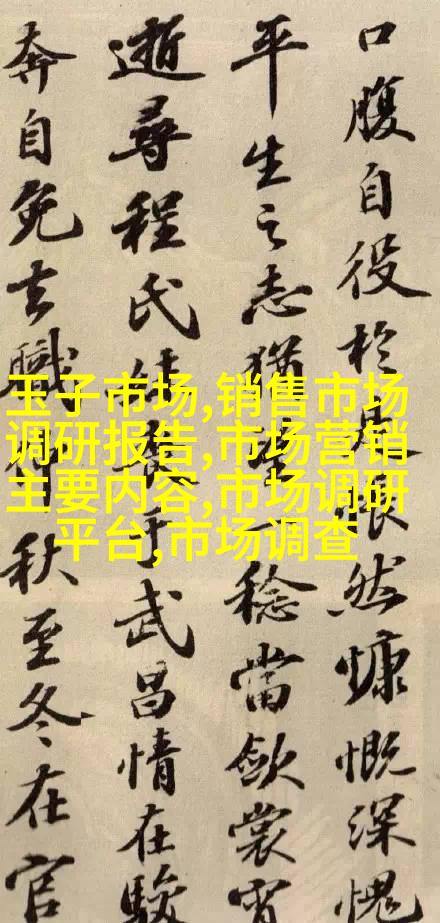 口腹自役於是悵然慷慨深愧
平生之志猶望一稔當歛裳宵
逝尋程氏妹喪于武昌情在駿
奔自免去職仲秋至冬在官
玉子市场,销售市场
调研报告,市场营销
主要内容,市场调研
平台,市场调查